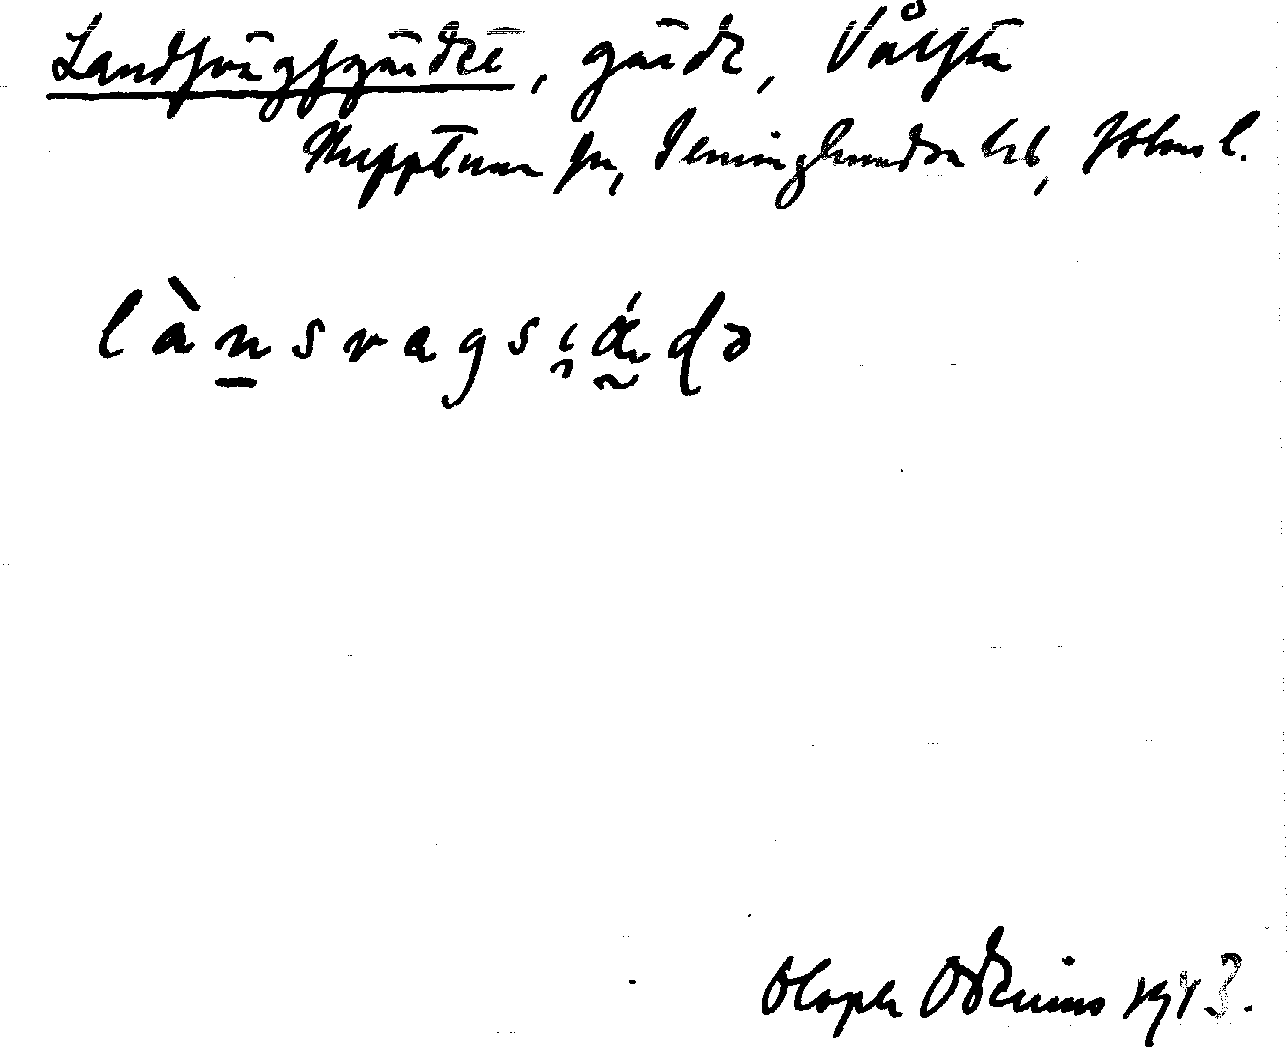 Landsvägsgärdet, gärde, Vårsta
Skepptuna sn, Seminghundra hd, Sthlms l.
làn̲svagsjǽdə
Oloph Odenius 1943.